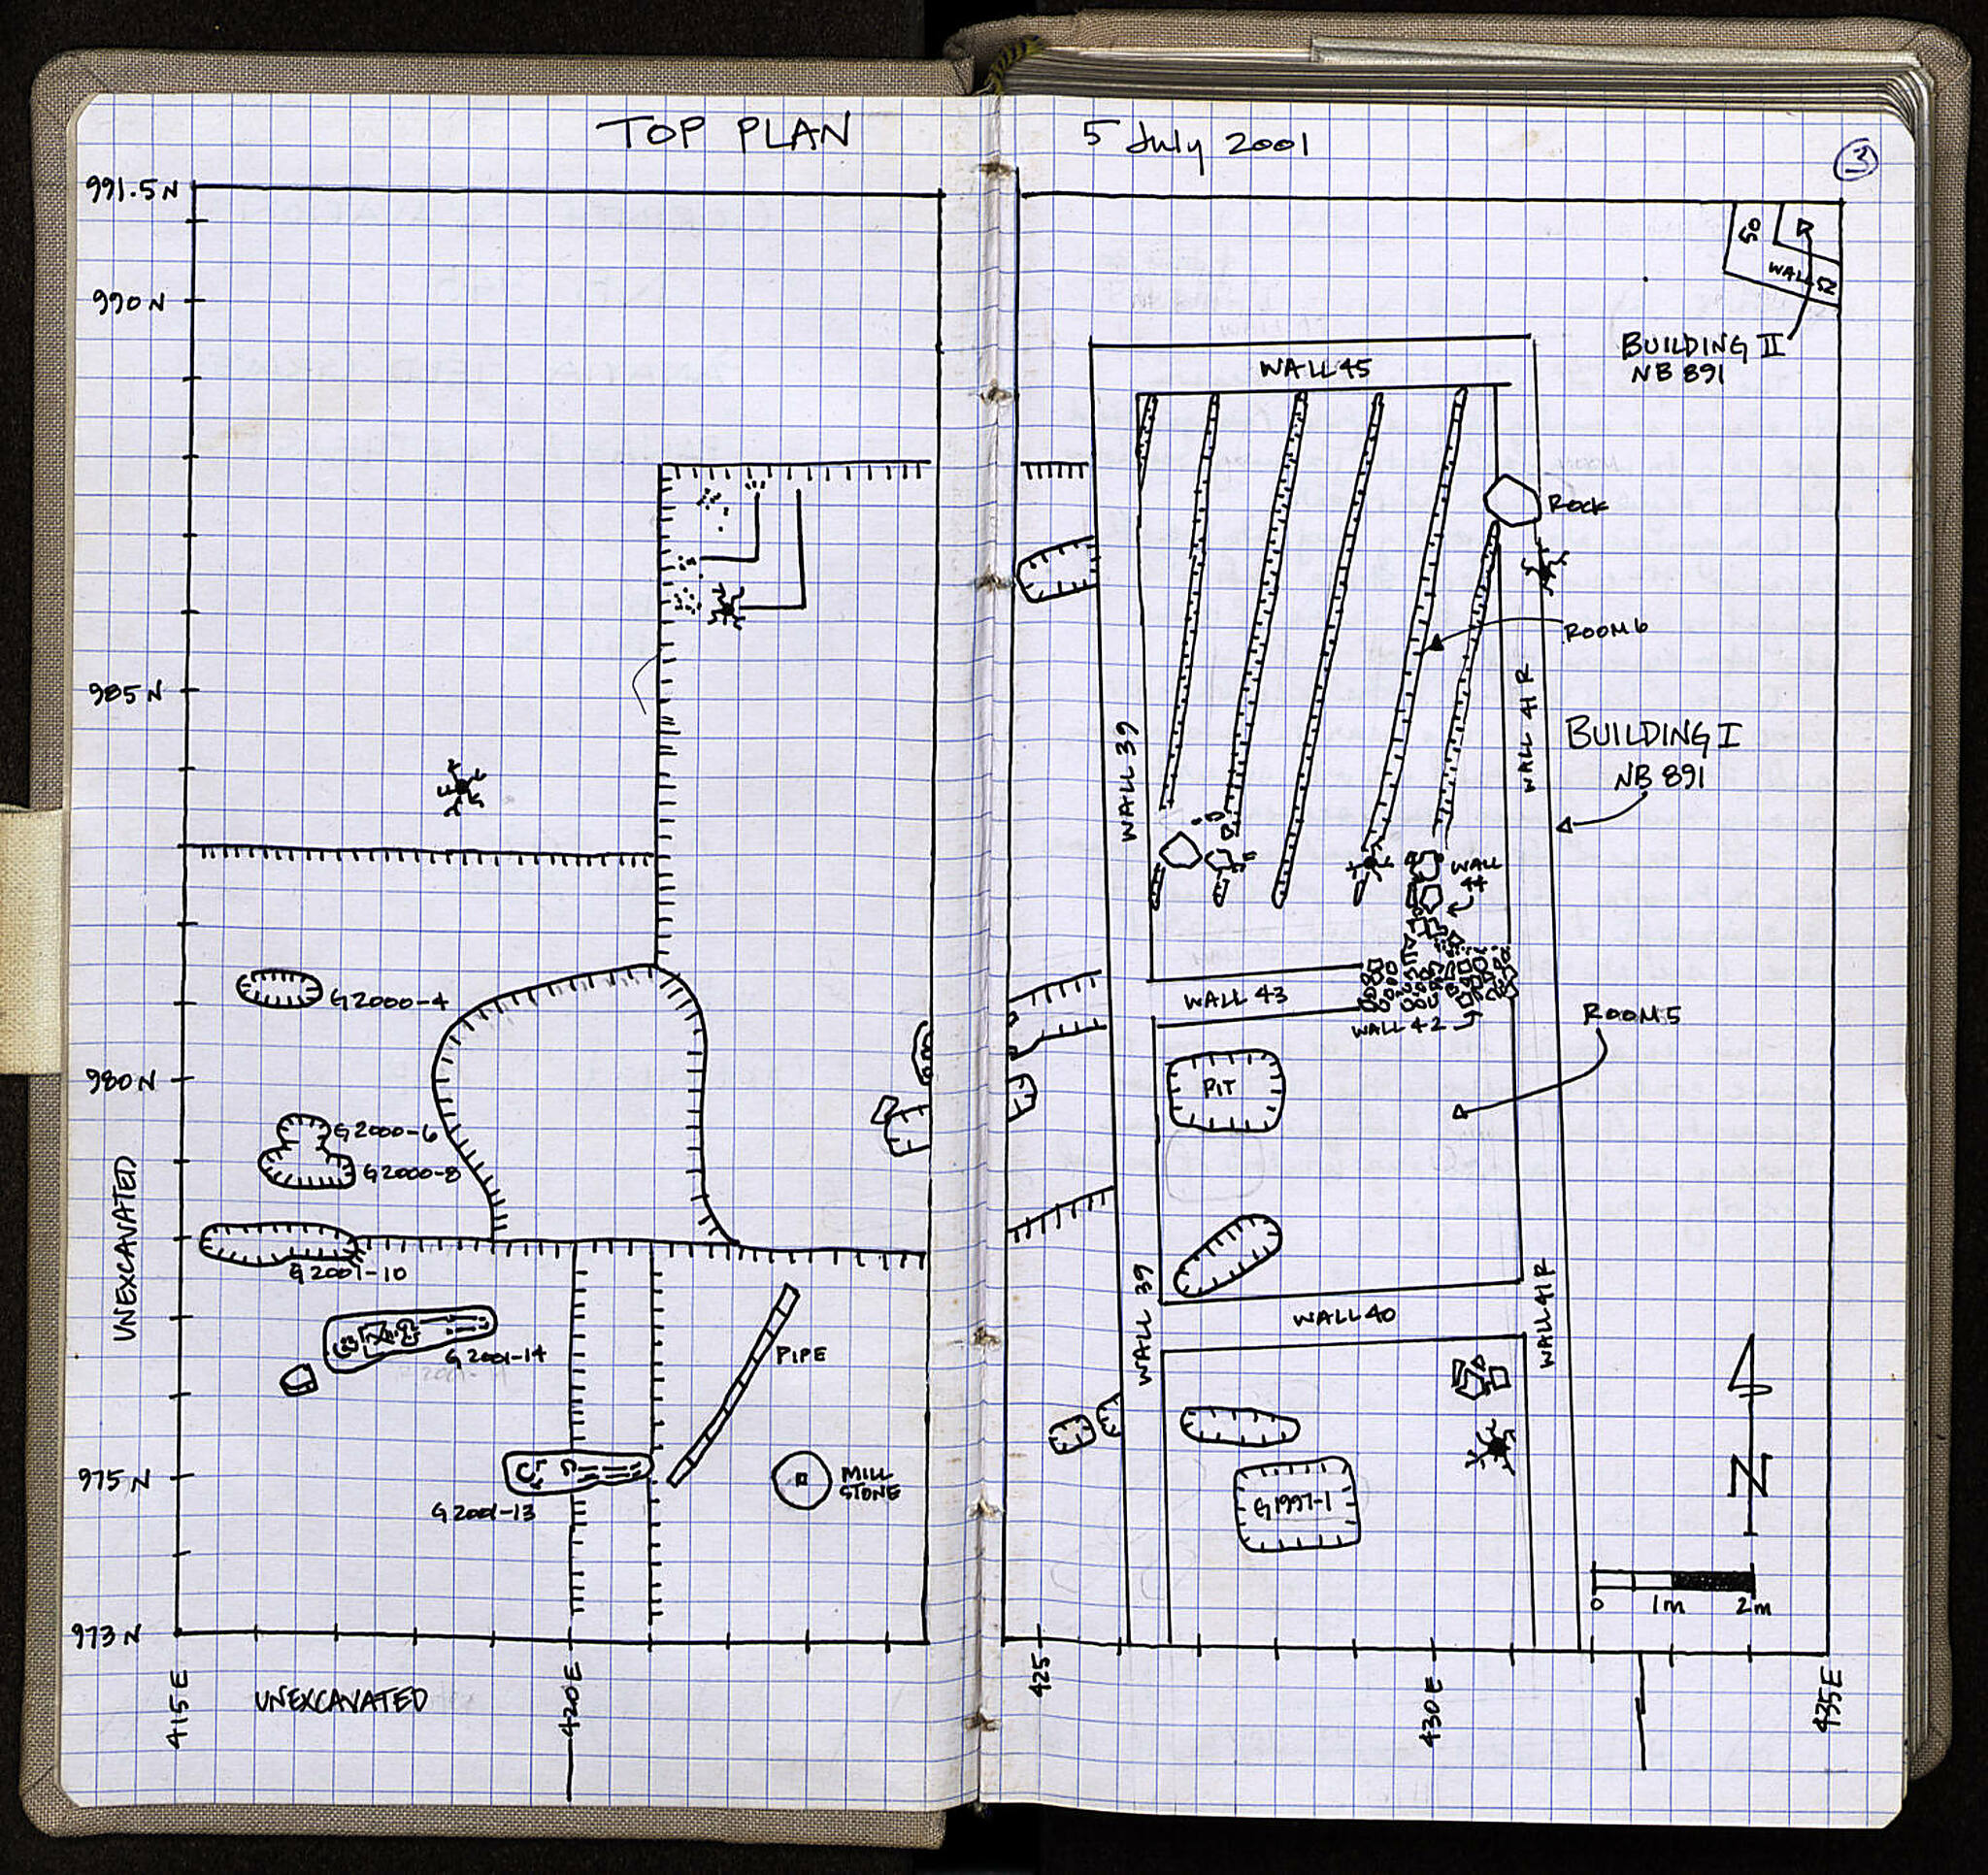 TOP PLAN
991.5 N
990 N
985 N
G2000-4
980 N
G2000-6
G2000-8
UNEXCAVATED
G2001-10
G2001-14
PIPE
975 N
MILL
STONE
G2001-13
973 N
415 E
UNEXCAVATED
420 E
5 July 2001
3
50
WALL 52
BUILDING II
NB 891
WALL 45
ROCK
ROOM 6
WALL 41 R
WALL 39
BUILDING I
NB 891
WALL
44
WALL 43
WALL 42
ROOM 5
PIT
WALL 39
WALL 40
WALL 41 R
G1997-1
N
0 1m 2m
425
430 E
435 E